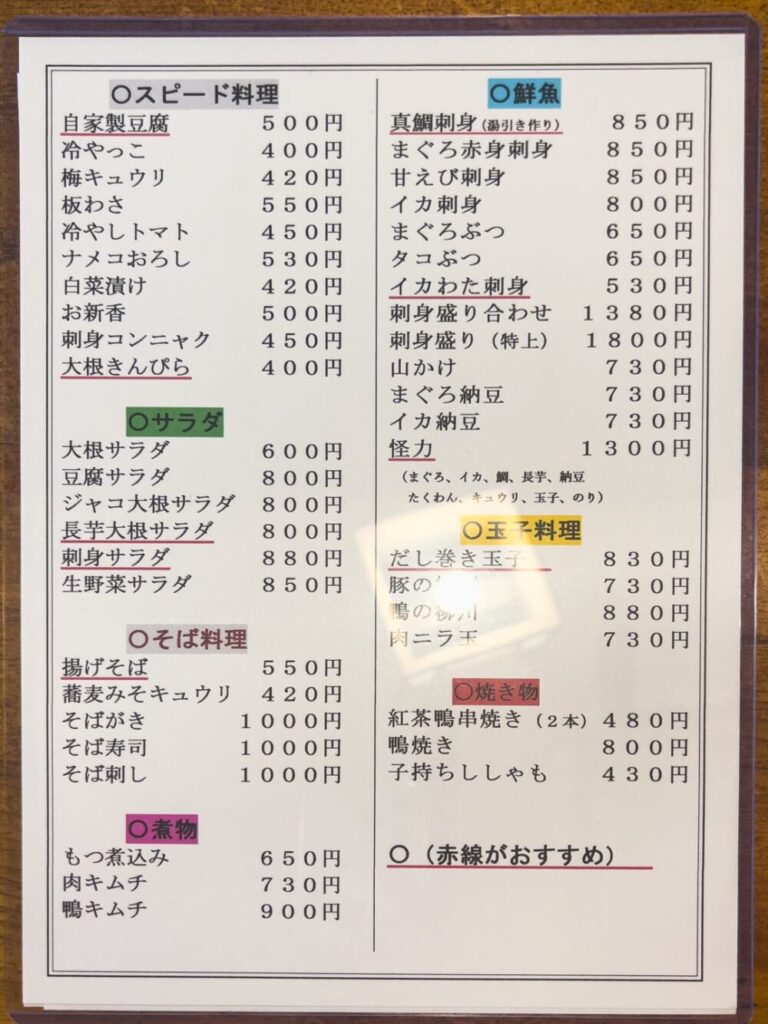 〇スピード料理
自家製豆腐 ５００円
冷やっこ ４００円
梅キュウリ ４２０円
板わさ ５５０円
冷やしトマト ４５０円
ナメコおろし ５３０円
白菜漬け ４２０円
お新香 ５００円
刺身コンニャク ４５０円
大根きんぴら ４００円
〇サラダ
大根サラダ ６００円
豆腐サラダ ８００円
ジャコ大根サラダ ８００円
長芋大根サラダ ８００円
刺身サラダ ８８０円
生野菜サラダ ８５０円
〇そば料理
揚げそば ５５０円
蕎麦みそキュウリ ４２０円
そばがき １０００円
そば寿司 １０００円
そば刺し １０００円
〇煮物
もつ煮込み ６５０円
肉キムチ ７３０円
鴨キムチ ９００円
〇鮮魚
真鯛刺身(湯引き作り) ８５０円
まぐろ赤身刺身 ８５０円
甘えび刺身 ８５０円
イカ刺身 ８００円
まぐろぶつ ６５０円
タコぶつ ６５０円
イカわた刺身 ５３０円
刺身盛り合わせ １３８０円
刺身盛り（特上） １８００円
山かけ ７３０円
まぐろ納豆 ７３０円
イカ納豆 ７３０円
怪力 １３００円
（まぐろ、イカ、鯛、長芋、納豆
たくわん、キュウリ、玉子、のり）
〇玉子料理
だし巻き玉子 ８３０円
豚の ７３０円
鴨の柳川 ８８０円
肉ニラ玉 ７３０円
〇焼き物
紅茶鴨串焼き（２本） ４８０円
鴨焼き ８００円
子持ちししゃも ４３０円
〇（赤線がおすすめ）